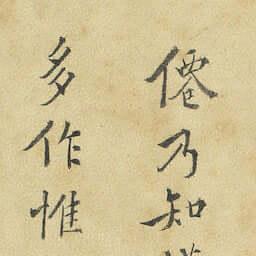 僊乃知
多作惟